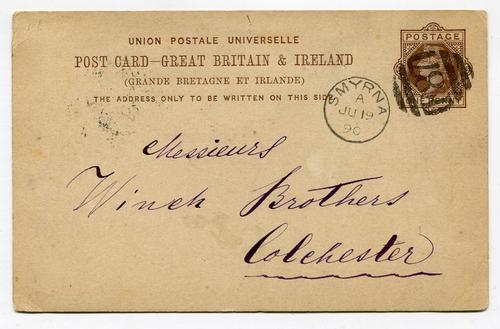 UNION POSTALE UNIVERSELLE
POST CARD—GREAT BRITAIN & IRELAND
(GRANDE BRETAGNE ET IRLANDE)
THE ADDRESS ONLY TO BE WRITTEN ON THIS SIDE
POSTAGE
SMYRNA
A
JU 19
90
Messieurs
Winch Brothers
Colchester